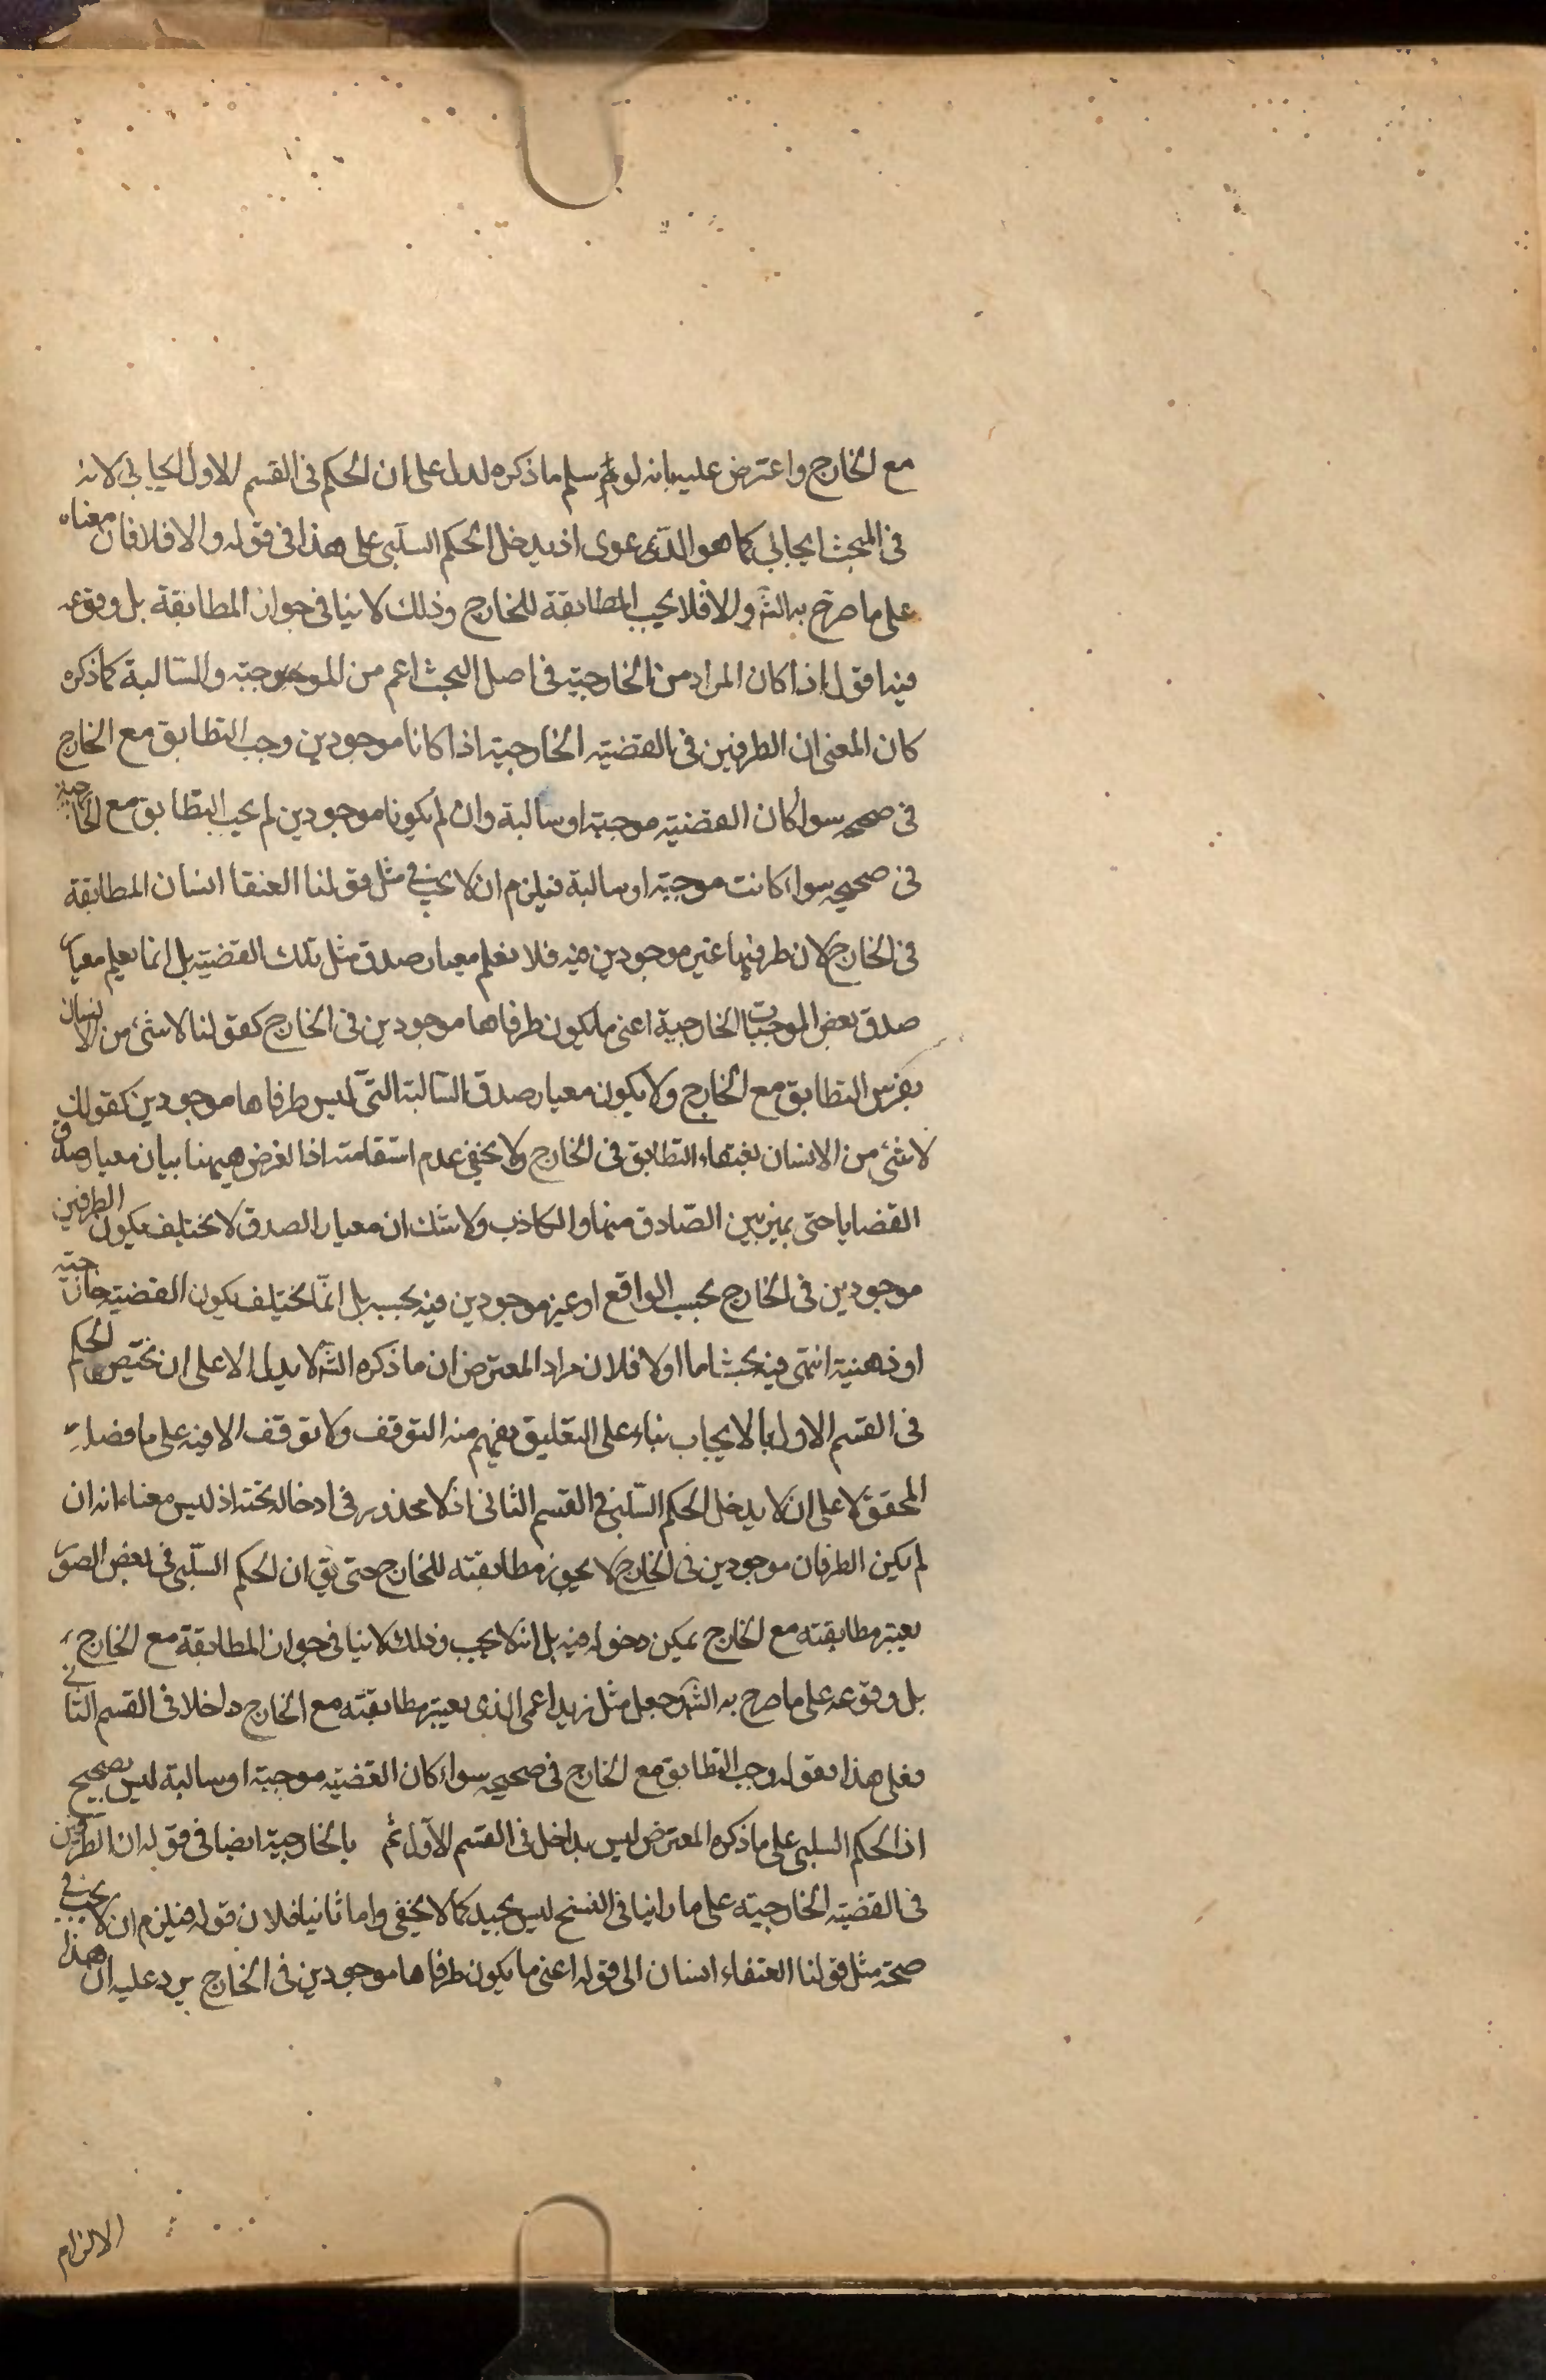 مع الخارج واعترض عليه بانه لو سلم ما ذكره لدل على ان الحكم فى القسم الاول ايجابي لا انه
فى المبحث ايجابي كما هو الدعوى اذ يدخل الحكم السلبي على هذا فى قوله والا فلا فان معناه
على ما صرح به الش والا فلا يجب المطابقة للخارج وذلك لا ينافى جواز المطابقة بل وقوعه
فيه اقول اذا كان المراد من الخارجية فى اصل البحث اعم من الموجبة والسالبة كما ذكره
كان المعنى ان الطرفين فى القضية الخارجية اذا كانا موجودين وجب التطابق مع الخارج
فى صحيحه سواء كان القضية موجبة او سالبة وان لم يكونا موجودين لم يجب التطابق مع الخارجية
فى صحيحه سواء كانت موجبة او سالبة فيلزم ان لا يجب في مثل قولنا العنقا انسان المطابقة
فى الخارج لان طرفيها غير موجودين فيه فلا يعلم معيار صدق مثل تلك القضية بل انما يعلم معيار
صدق بعض الموجبات الخارجية اعنى ما يكون طرفاها موجودين فى الخارج كقولنا لا شئ من الانسان
بفرس التطابق مع الخارج ولا يكون معيار صدق السالبة التى ليس طرفاها موجودين كقولك
لا شئ من الانسان بعنقاء التطابق فى الخارج ولا يخفى عدم استقامته اذ الغرض ههنا بيان معيار صدق
القضايا حتى يميز بين الصادق منها والكاذب ولا شك ان معيار الصدق لا يختلف بكون الطرفين
موجودين فى الخارج بحسب الواقع او غير موجودين فيه بحسبه بل انما يختلف بكون القضية خارجية
او ذهنية انتهى فيه بحث اما اولا فلان مراد المعترض ان ما ذكره الش لا يدل الا على ان يختص الحكم
فى القسم الاول بالايجاب بناء على التعليق يفهم منه التوقف ولا توقف الا فيه على ما فصله
المحقق لا على ان لا يدخل الحكم السلبي في القسم الثانى اذ لا محذور فى ادخاله تحته اذ ليس معناه انه ان
لم يكن الطرفان موجودين فى الخارج لا يجوز مطابقته للخارج حتى يق ان الحكم السلبي فى بعض الصور
يعتبر مطابقته مع الخارج يمكن دخوله فيه بل انه لا يجب وذلك لا ينافى جواز المطابقة مع الخارج
بل وقوعه على ما صرح به الش وجعل مثل زيد اعمى الذى يعتبر مطابقته مع الخارج داخلا فى القسم الثاني
فعلى هذا بقوله وجب التطابق مع الخارج فى صحيحه سواء كان القضية موجبة او سالبة ليس بصحيح
اذ الحكم السلبي على ما ذكره المعترض ليس بداخل فى القسم الاول ثم بالخارجية ايضا فى قوله ان الطرفين
فى القضية الخارجية على ما راينا فى النسخ ليس بجيد كما لا يخفى واما ثانيا فلان قوله فيلزم ان لا يجب في
صحة مثل قولنا العنقاء انسان الى قوله اعنى ما يكون طرفاها موجودين فى الخارج يرد عليه ان هذا
الالزام